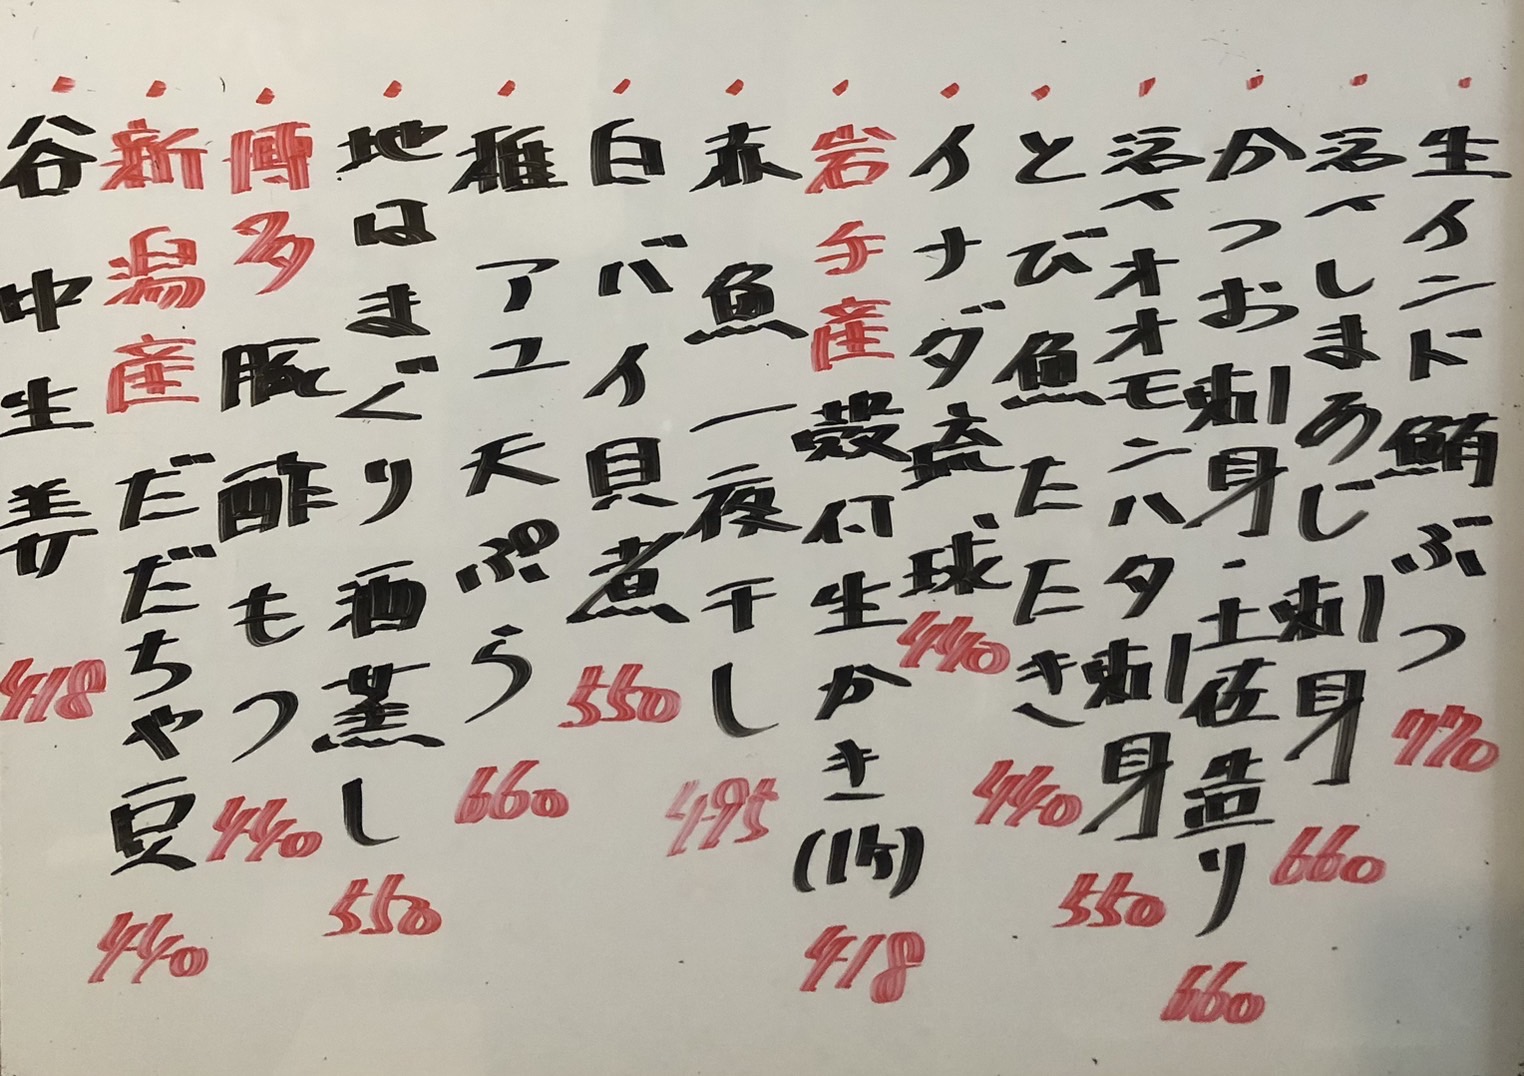 ・生インド鮪ぶつ 770
・活〆しまあじ刺身 660
・かつお刺身・土佐造り 660
・活〆オオモンハタ刺身 550
・とび魚たたき 440
・イナダ琉球 440
・岩手産殻付生かき(1ケ) 418
・赤魚一夜干し 495
・白バイ貝煮 550
・稚アユ天ぷら 660
・地はまぐり酒蒸し 550
・博多豚酢もつ 440
・新潟産だだちゃ豆 440
・谷中生姜 418